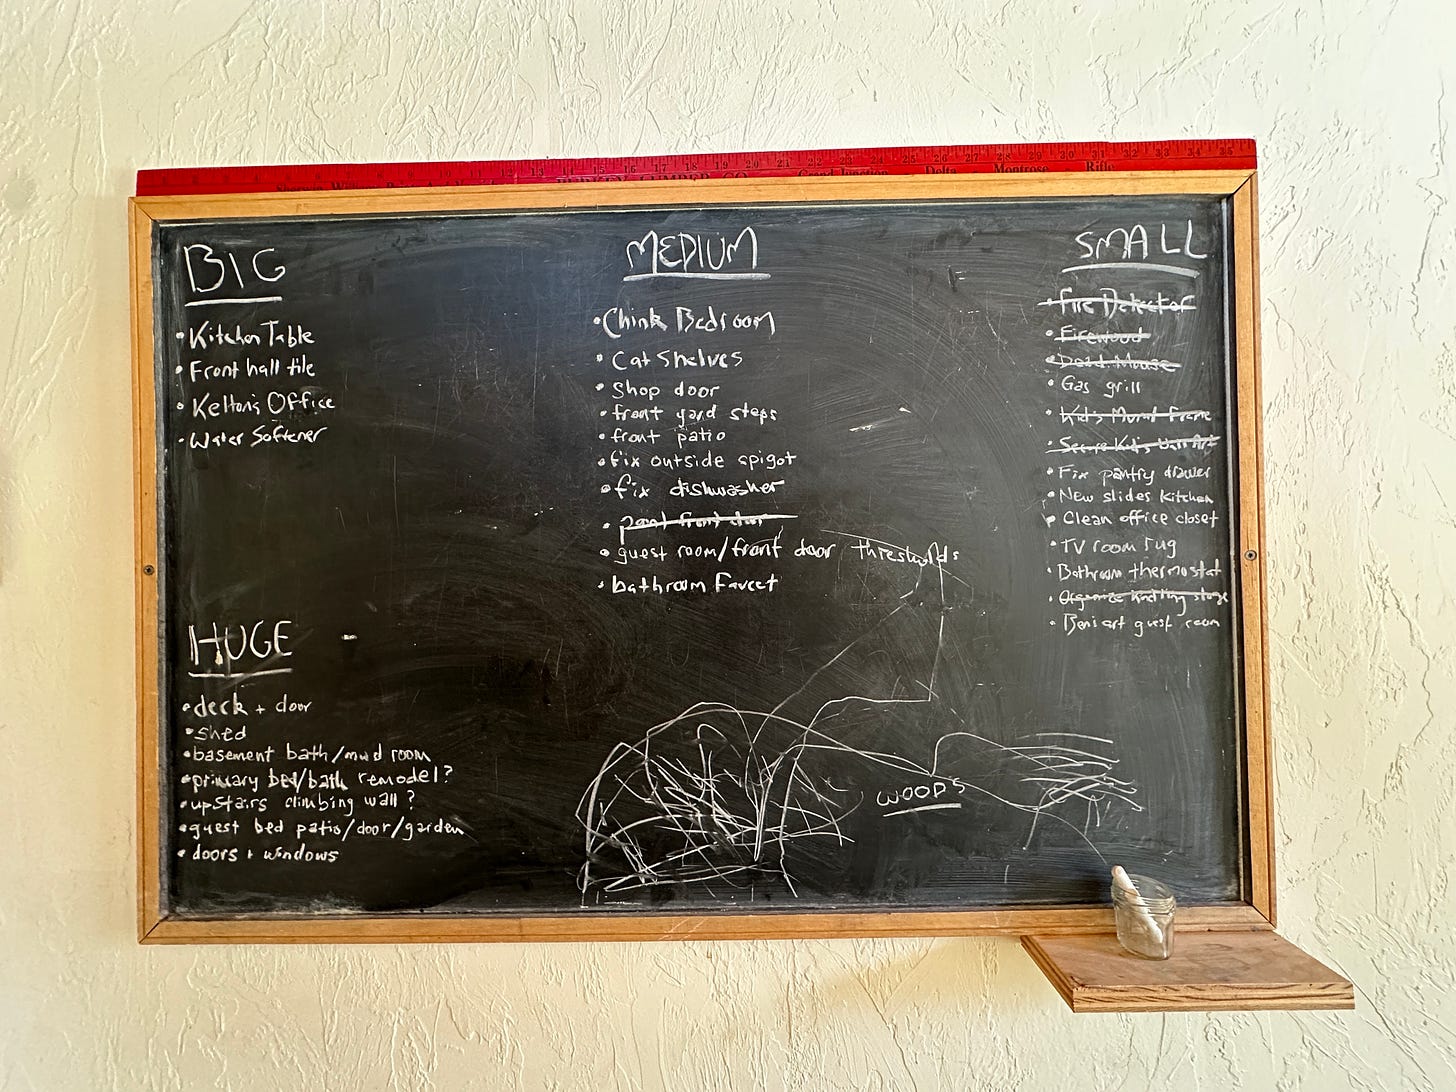 BIG
• Kitchen Table
• Front hall tile
• Kelton's Office
• Water Softener
HUGE
• deck + door
• shed
• basement bath/mud room
• primary bed/bath remodel?
• upstairs climbing wall?
• guest bed patio/door/garden
• doors + windows
MEDIUM
• Chink Bedroom
• Cat Shelves
• Shop door
• front yard steps
• front patio
• fix outside spigot
• fix dishwasher
• front door
• guest room/front door thresholds
• bathroom Faucet
WOODS
SMALL
• Fire Detector
• Firewood
• Dead Mouse
• Gas grill
• Kid's Mural Frame
• Secure Kid's Wall Art
• Fix pantry drawer
• New slides Kitchen
• Clean office closet
• TV room rug
• Bathroom thermostat
• Organize Knitting
• art guest room
Grand Junction Delta Montrose Rifle